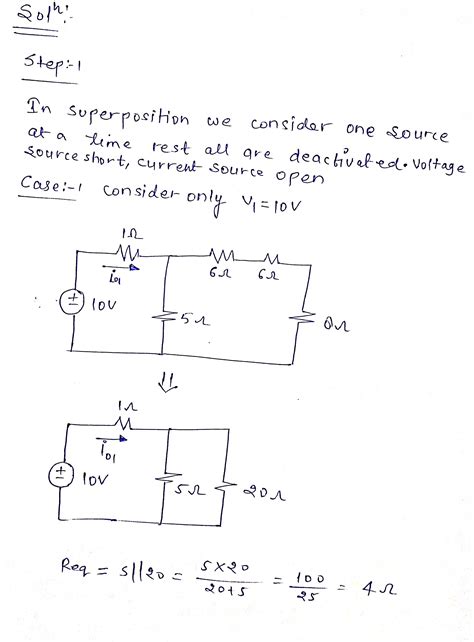 Solⁿ:-
Step:-1
In superposition we consider one source
at a time rest all are deactivated. Voltage
source short, current source open
Case:-1 consider only V₁=10V
1Ω
i₀₁
6Ω 6Ω
10V
5Ω
8Ω
⇓
1Ω
i₀₁
10V
5Ω
20Ω
Req = 5||20 = 5×20/20+5 = 100/25 = 4Ω